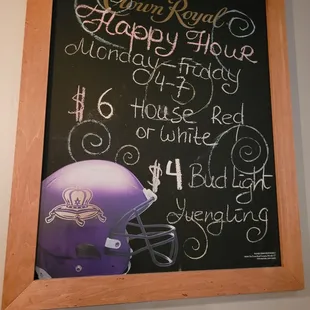 Crown Royal
Happy Hour
Monday-Friday
4-7
$6 House Red
or White
$4 Bud Light
Yuengling